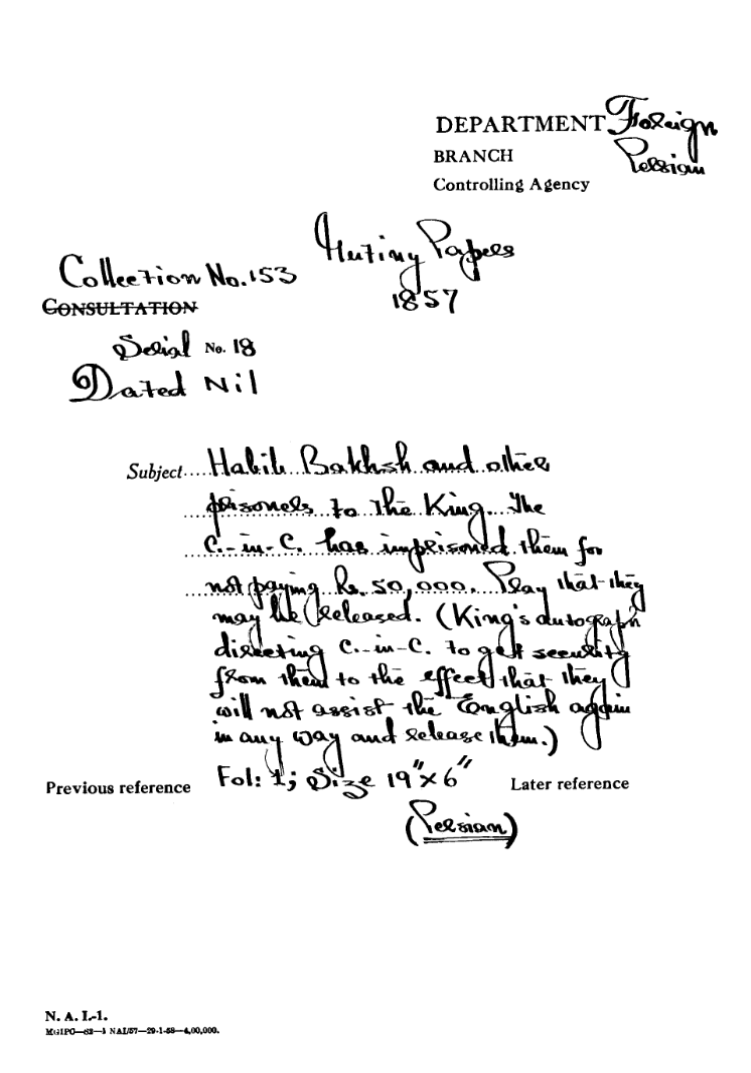 DEPARTMENT Foreign
BRANCH Persian
Controlling Agency
Mutiny Papers
1857
Collection No. 153
CONSULTATION
Serial No. 18
Dated Nil
Subject Habib Bakhsh and other
prisoners to the King. The
C.-in-C. has imprisoned them for
not paying Rs. 50,000. Pray that they
may be released. (King's autograph
directing C.-in-C. to get security
from them to the effect that they
will not assist the English again
in any way and release them.)
Previous reference Fol: 1; Size 19"x6" Later reference
(Persian)
N. A. I.-1.
MGIPC—63—3 NAI/57—29-1-58—4,00,000.